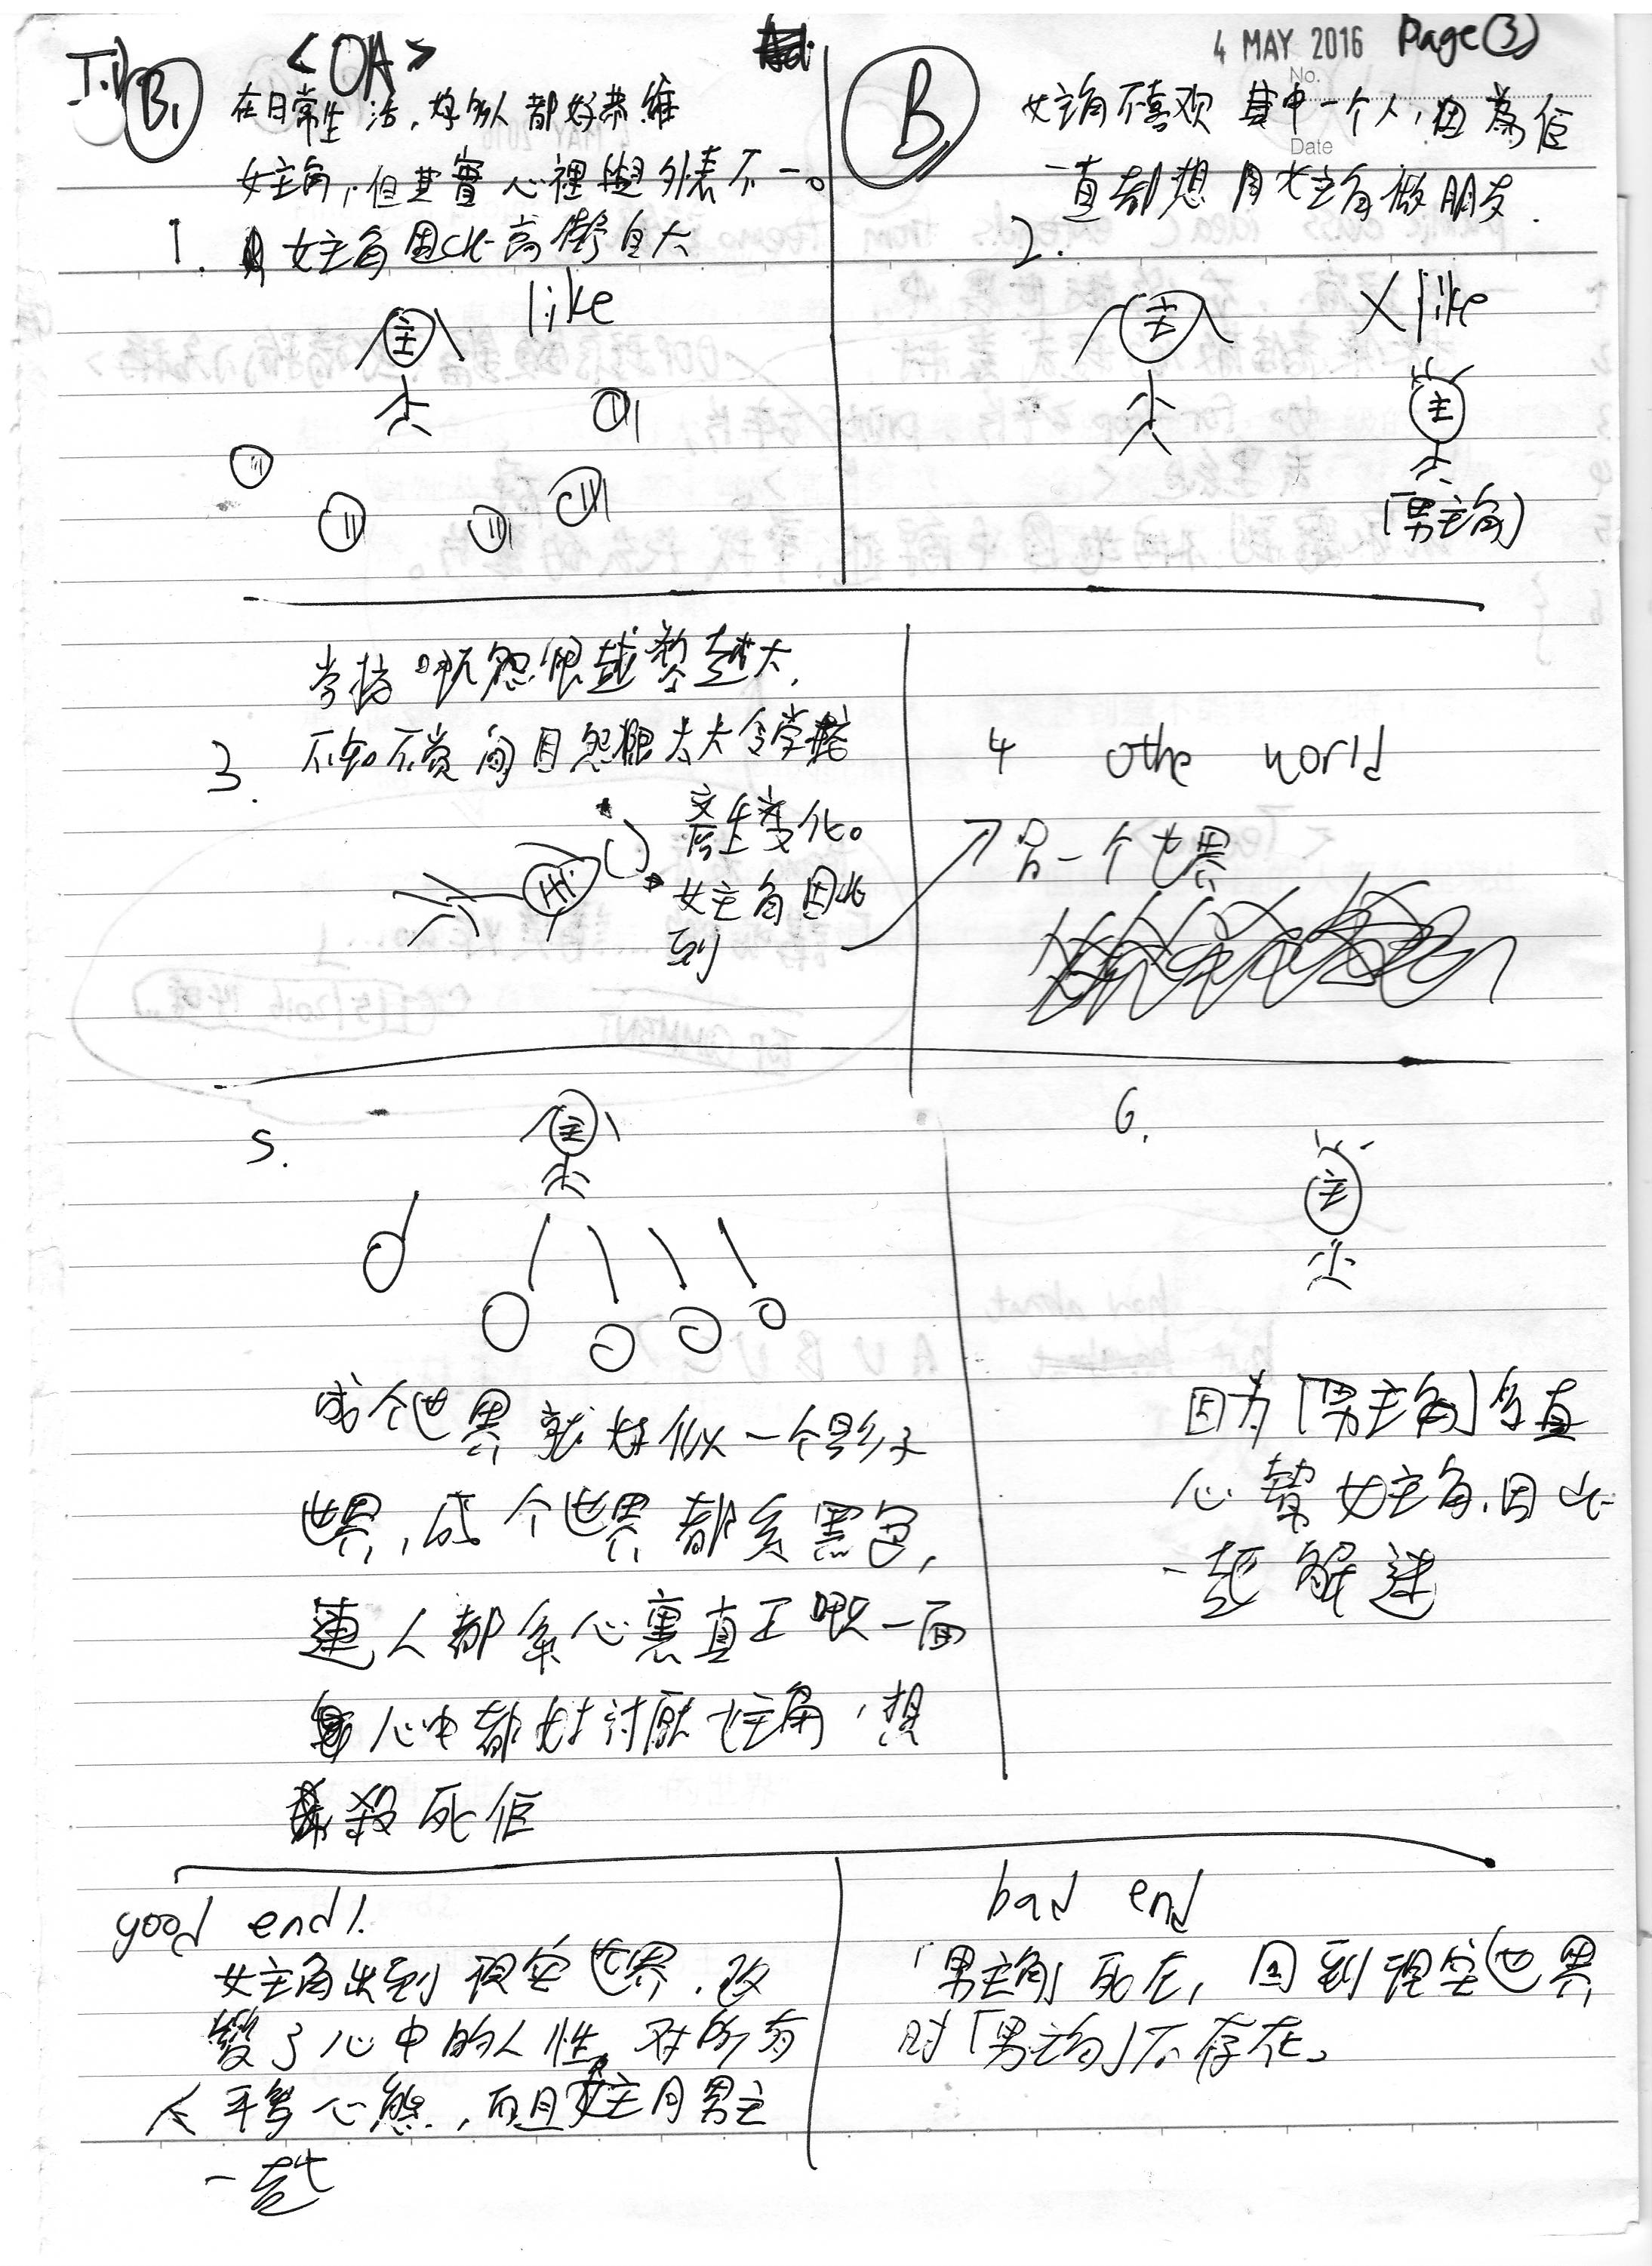 <OA>
4 MAY 2016 Page ③
No.
Date
B1
在日常生活,好多人都好恭維
女主角,但其實心裡與外表不一。
1. 女主角因此高傲自大
like
主
B
女主角不喜欢其中一个人,因為佢
一直都想同女主角做朋友.
2.
X like
主
主
「男主角」
学校嘅怨恨越黎越大,
3. 不知不覚間因怨恨太大令学校
產生变化。
女主角因此
到
4 othe world
另一个世界
5.
主
成个世界就好似一个影子
世界,成个世界都系黑色,
連人都系心裏真正嘅一面
心中都好討厭女主角,想
殺死佢
6.
主
因为「男主角」多真
心幫女主角,因此
一起解迷
good end1.
女主角出到現实世界,改
變了心中的人性,对所有
人平等心態,而且女主同男主
一起
bad end
「男主角」死左,回到現实世界
时「男主角」不存在。